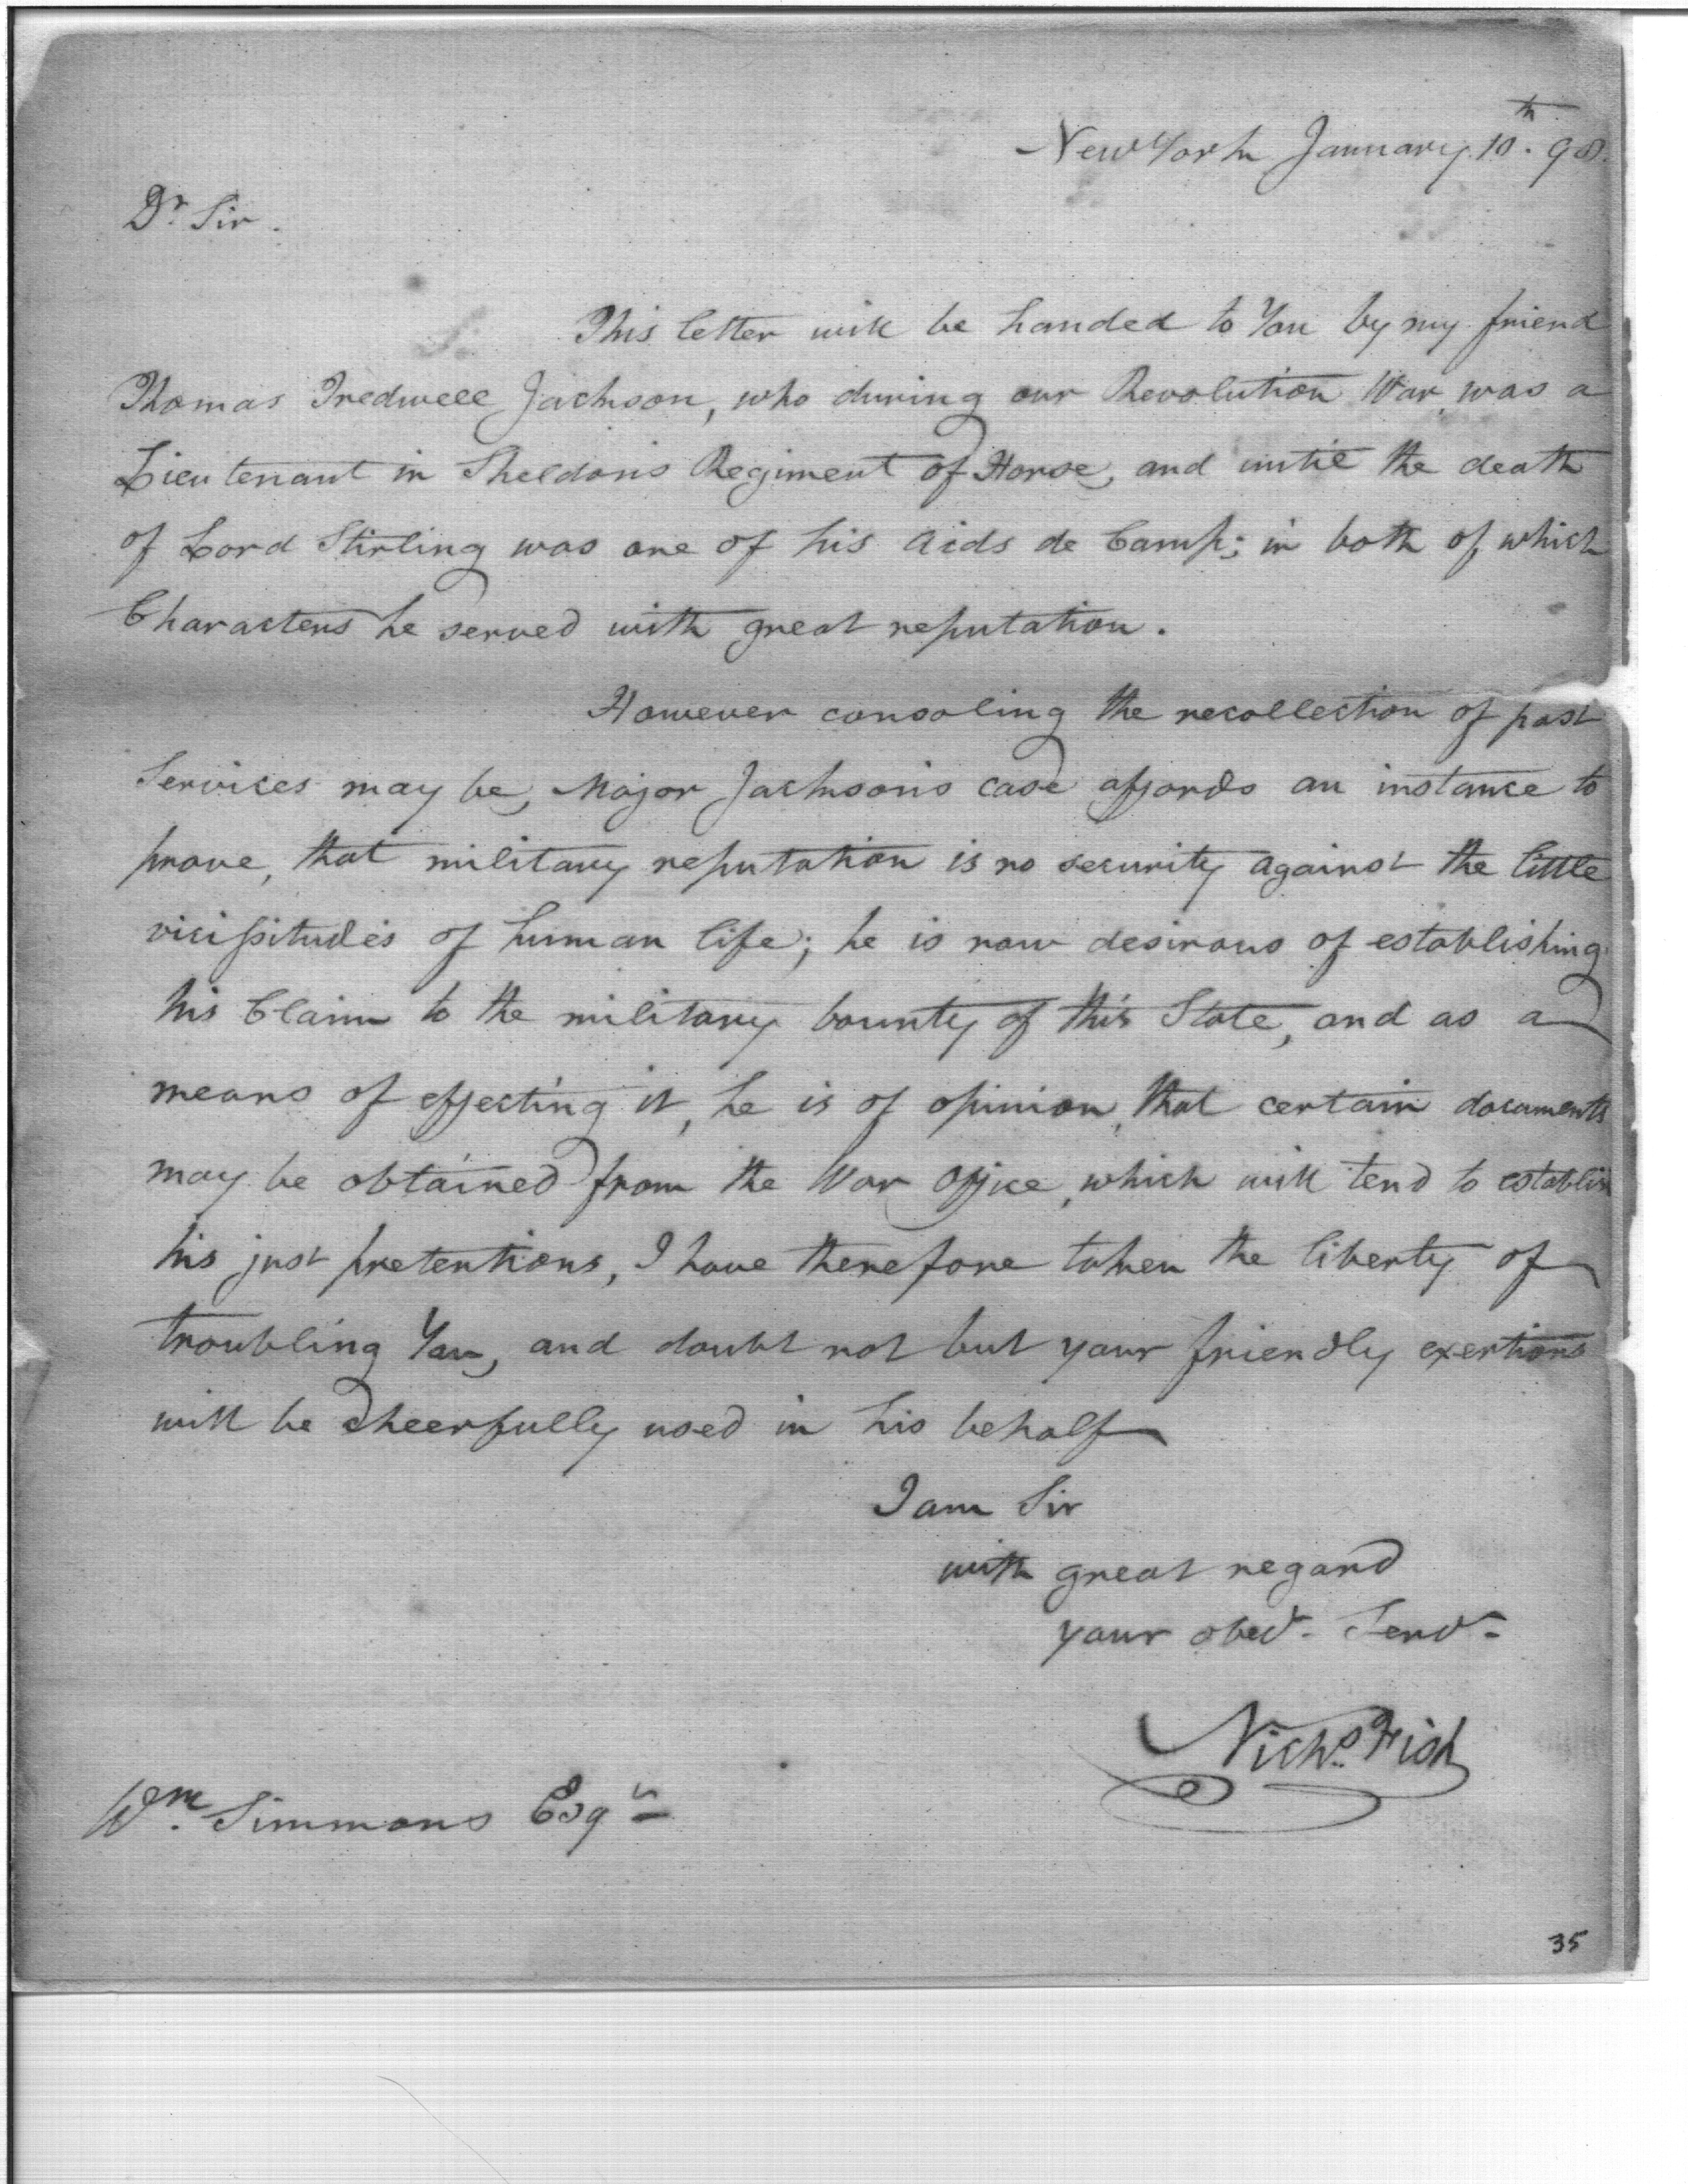 New York January 10th. 98.
Dr. Sir.
This letter will be handed to You by my friend
Thomas Tredwell Jackson, who during our Revolution War, was a
Lieutenant in Sheldon's Regiment of Horse, and until the death
of Lord Stirling was one of his Aids de Camp; in both of which
Characters he served with great reputation.
However consoling the recollection of past
Services may be, Major Jackson's case affords an instance to
prove, that military reputation is no security against the little
vicissitudes of human life; he is now desirous of establishing
his Claim to the military bounty of this State, and as a
means of effecting it, he is of opinion, that certain documents
may be obtained from the War Office, which will tend to establish
his just pretentions, I have therefore taken the liberty of
troubling You, and doubt not but your friendly exertions
will be cheerfully used in his behalf
I am Sir
with great regard
your obedt. Servt.
Nichs. Fish
Wm. Simmons Esqr
35